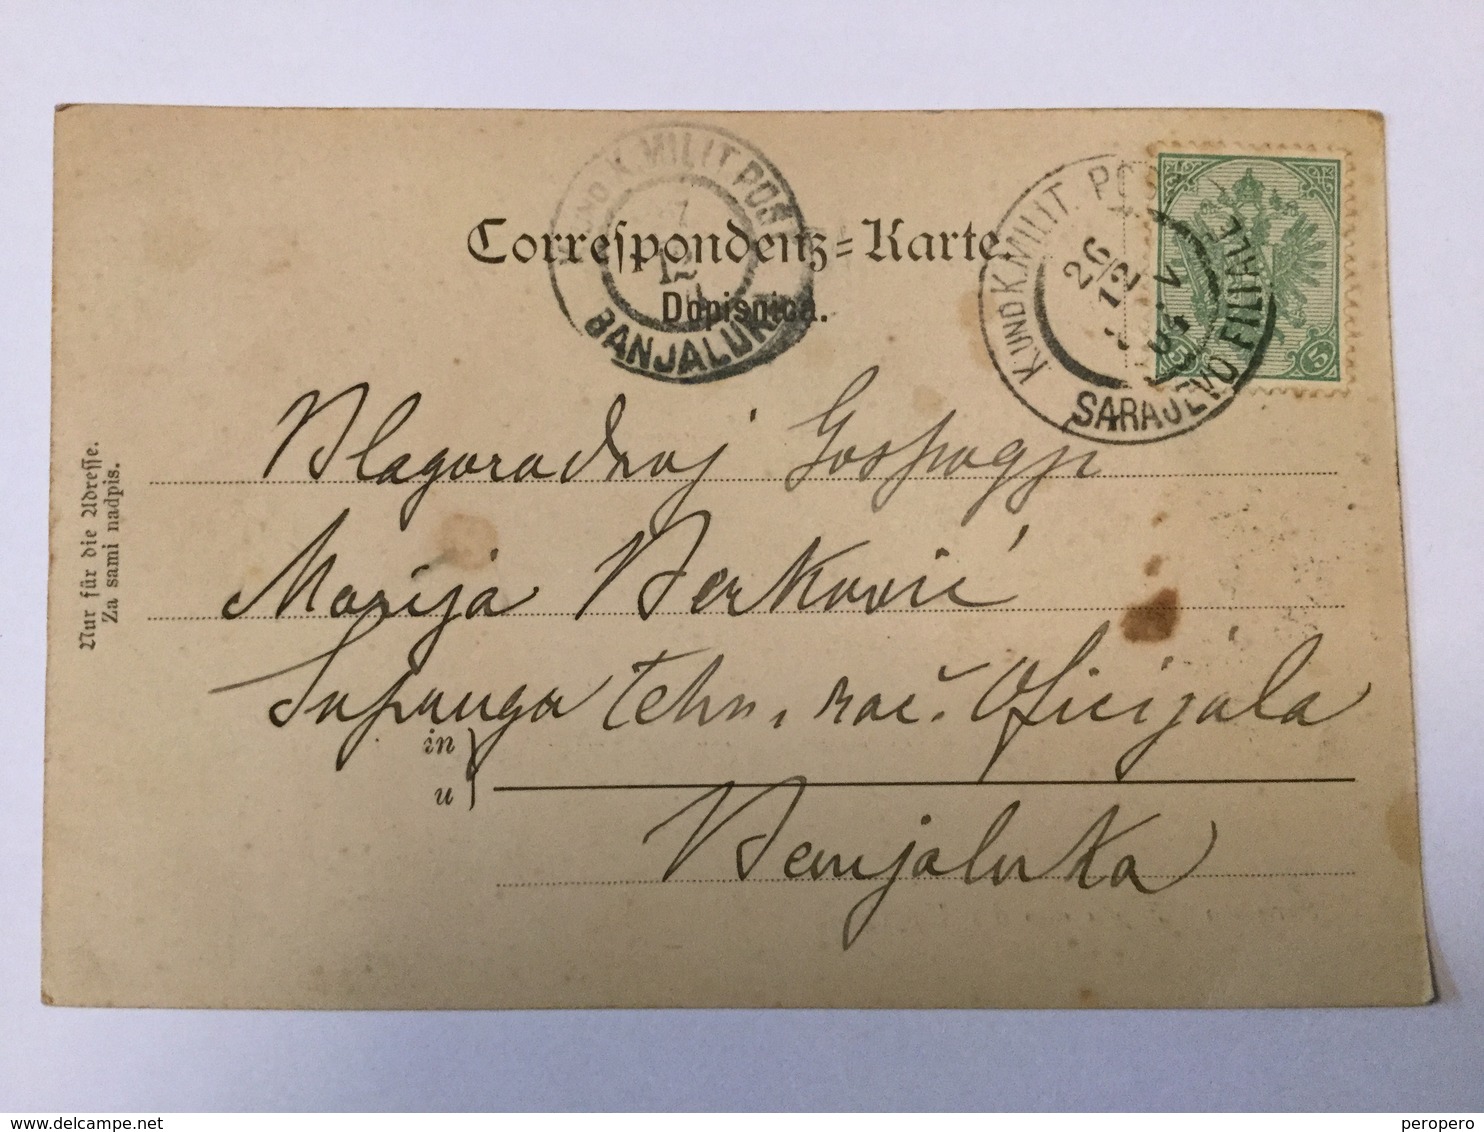 K. UND K. MILIT. POST
12
BANJALUKA
K. UND K. MILIT. POST
26
12
SARAJEVO FILIALE
5
Correspondenz=Karte.
Dopisnica.
Nur für die Adresse.
Za sami nadpis.
Blagorodnoj Gospogji
Marija Berković
Supruga tehn. rač. Oficijala
in
u
Banjaluka
delcampe.net
peropero